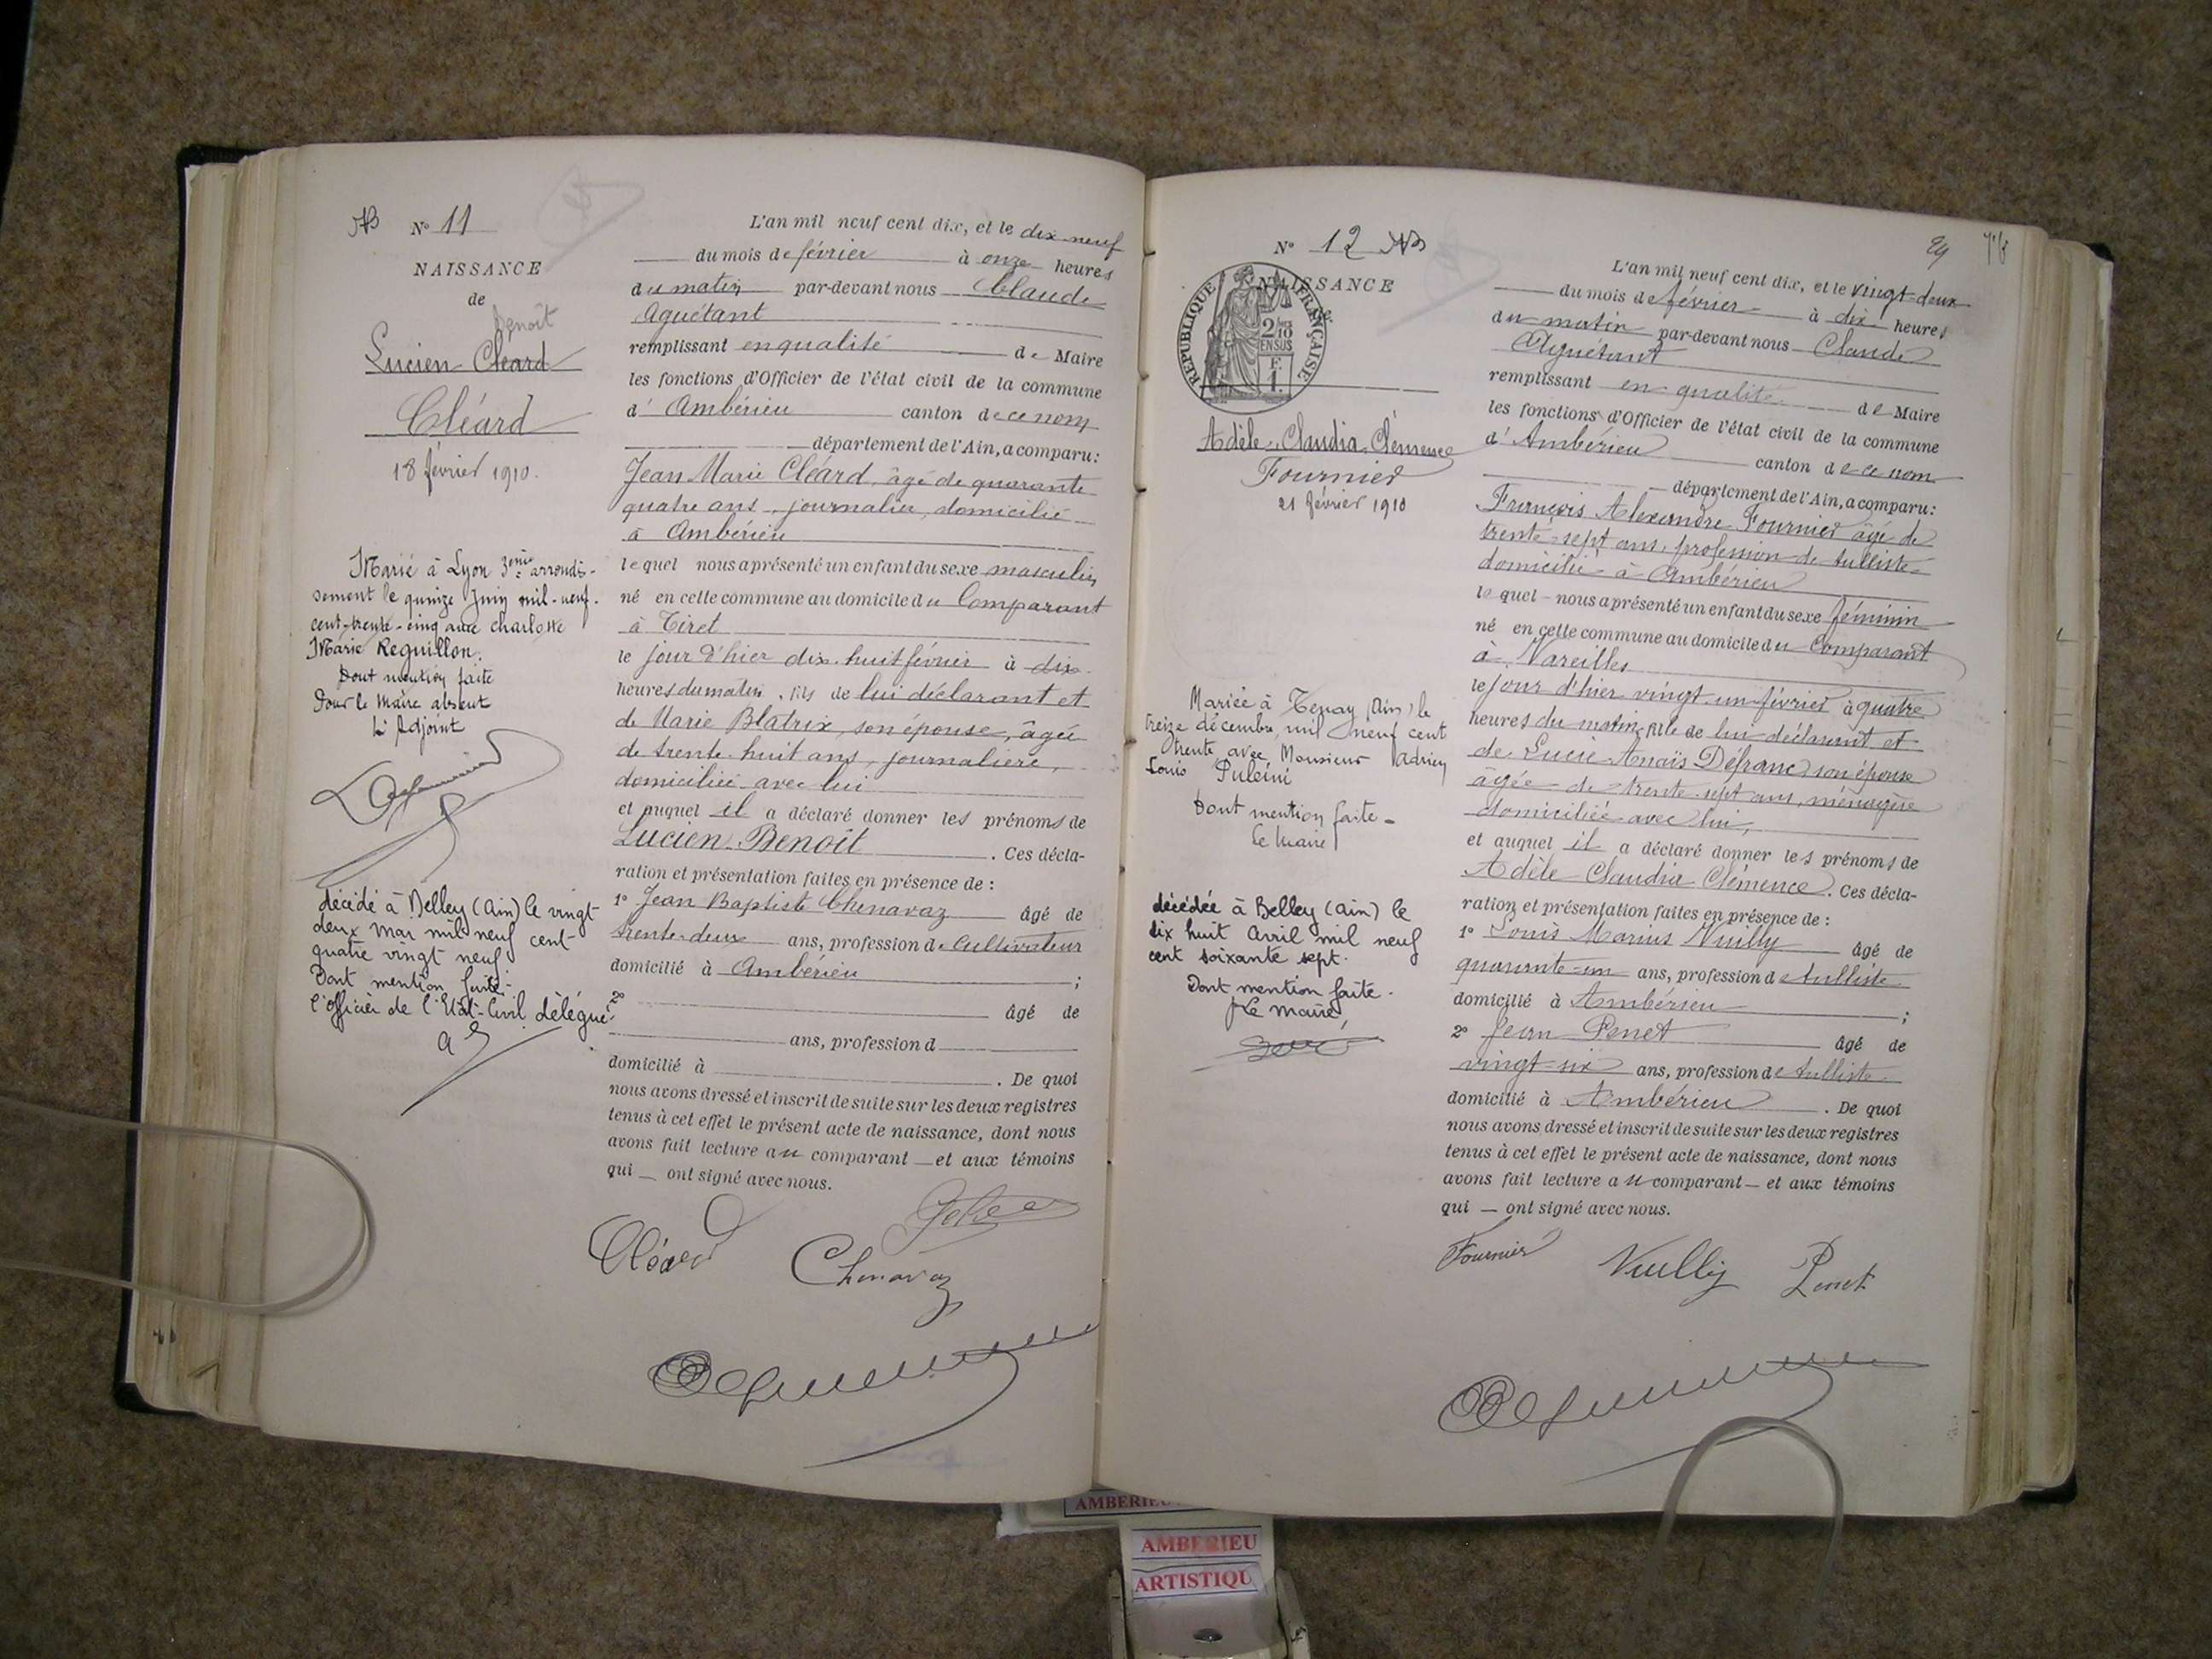 N° 11
NAISSANCE
de
Benoît
Lucien Cléard
Cléard
18 février 1910.
Marié à Lyon 3eme arrondis-
sement le quinze Juin mil-neuf-
cent-trente-cinq avec Charlotte
Marie Reguillon.
Dont mention faite
Pour le Maire absent
L'Adjoint
décédé à Belley (Ain) le vingt
deux mai mil neuf cent
quatre vingt neuf.
Dont mention faite.
l'officier de l'Etat-Civil délégué
L'an mil neuf cent dix, et le dix-neuf
du mois de février à onze heures
du matin par-devant nous Claude
Aguétant
remplissant en qualité de Maire
les fonctions d'Officier de l'état civil de la commune
d' Ambérieu canton de ce nom
département de l'Ain, a comparu:
Jean Marie Cléard, âgé de quarante
quatre ans, journalier, domicilié
à Ambérieu
lequel nous a présenté un enfant du sexe masculin
né en cette commune au domicile du Comparant
à Tiret
le jour d'hier dix-huit février à dix
heures du matin, fils de lui déclarant et
de Marie Blatrix, son épouse, âgée
de trente-huit ans, journalière,
domiciliée avec lui
et auquel il a déclaré donner les prénoms de
Lucien Benoît. Ces décla-
ration et présentation faites en présence de :
1° Jean Baptiste Chenavaz âgé de
trente-deux ans, profession de Cultivateur
domicilié à Ambérieu ;
2° âgé de
ans, profession d
domicilié à . De quoi
nous avons dressé et inscrit de suite sur les deux registres
tenus à cet effet le présent acte de naissance, dont nous
avons fait lecture au comparant — et aux témoins
qui — ont signé avec nous.
Cléard Chenavaz
N° 12
NAISSANCE
de
RÉPUBLIQUE FRANÇAISE
2/10
EN SUS
F.
1.
Adèle, Claudia, Clémence
Fournier
21 février 1910
Mariée à Tenay (Ain) le
treize décembre mil neuf cent
trente avec Monsieur Adrien
Louis Puleini
Dont mention faite -
Le Maire
décédée à Belley (Ain) le
dix huit Avril mil neuf
cent soixante sept.
Dont mention faite.
Le Maire,
L'an mil neuf cent dix, et le vingt-deux
du mois de février à dix heures
du matin par-devant nous Claude
Aguétant
remplissant en qualité de Maire
les fonctions d'Officier de l'état civil de la commune
d' Ambérieu canton de ce nom
département de l'Ain, a comparu:
François Alexandre Fournier âgé de
trente-sept ans, profession de tulliste
domicilié à Ambérieu
lequel nous a présenté un enfant du sexe féminin
né en cette commune au domicile du Comparant
à Vareilles
le jour d'hier vingt-un février à quatre
heures du matin, fille de lui déclarant et
de Lucie Anaïs Défranc, son épouse
âgée de trente-sept ans, ménagère
domiciliée avec lui,
et auquel il a déclaré donner les prénoms de
Adèle Claudia Clémence. Ces décla-
ration et présentation faites en présence de :
1° Louis Marius Vuilly âgé de
quarante-un ans, profession de tulliste
domicilié à Ambérieu ;
2° Jean Penet âgé de
vingt-six ans, profession de tulliste
domicilié à Ambérieu . De quoi
nous avons dressé et inscrit de suite sur les deux registres
tenus à cet effet le présent acte de naissance, dont nous
avons fait lecture au comparant — et aux témoins
qui — ont signé avec nous.
Fournier Vuilly Penet
AMBERIEU
AMBERIEU
ARTISTIQU